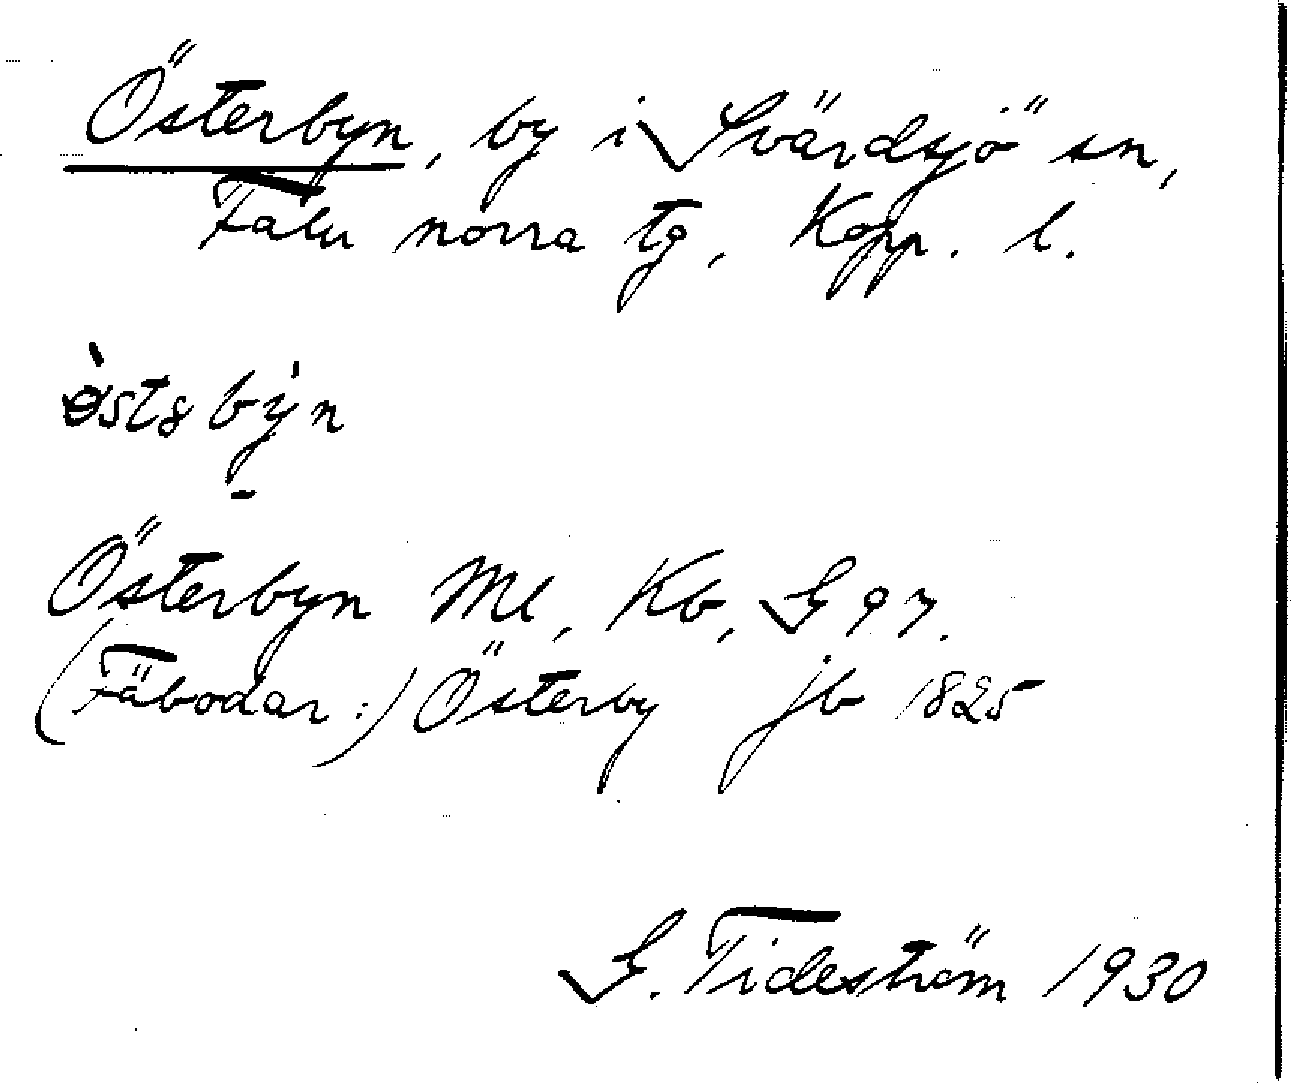 Österbyn, by i Svärdsjö sn,
Falu norra tg, Kopp. l.
Österbyn Ml, Kb, G 97.
(Fäbodar:) Österby jb 1825
G. Tideström 1930